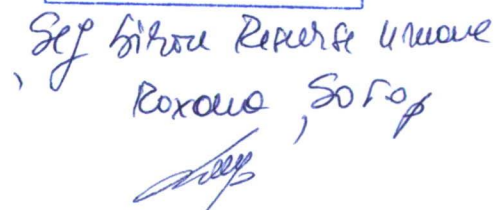 Șef birou Resurse umane
Roxana